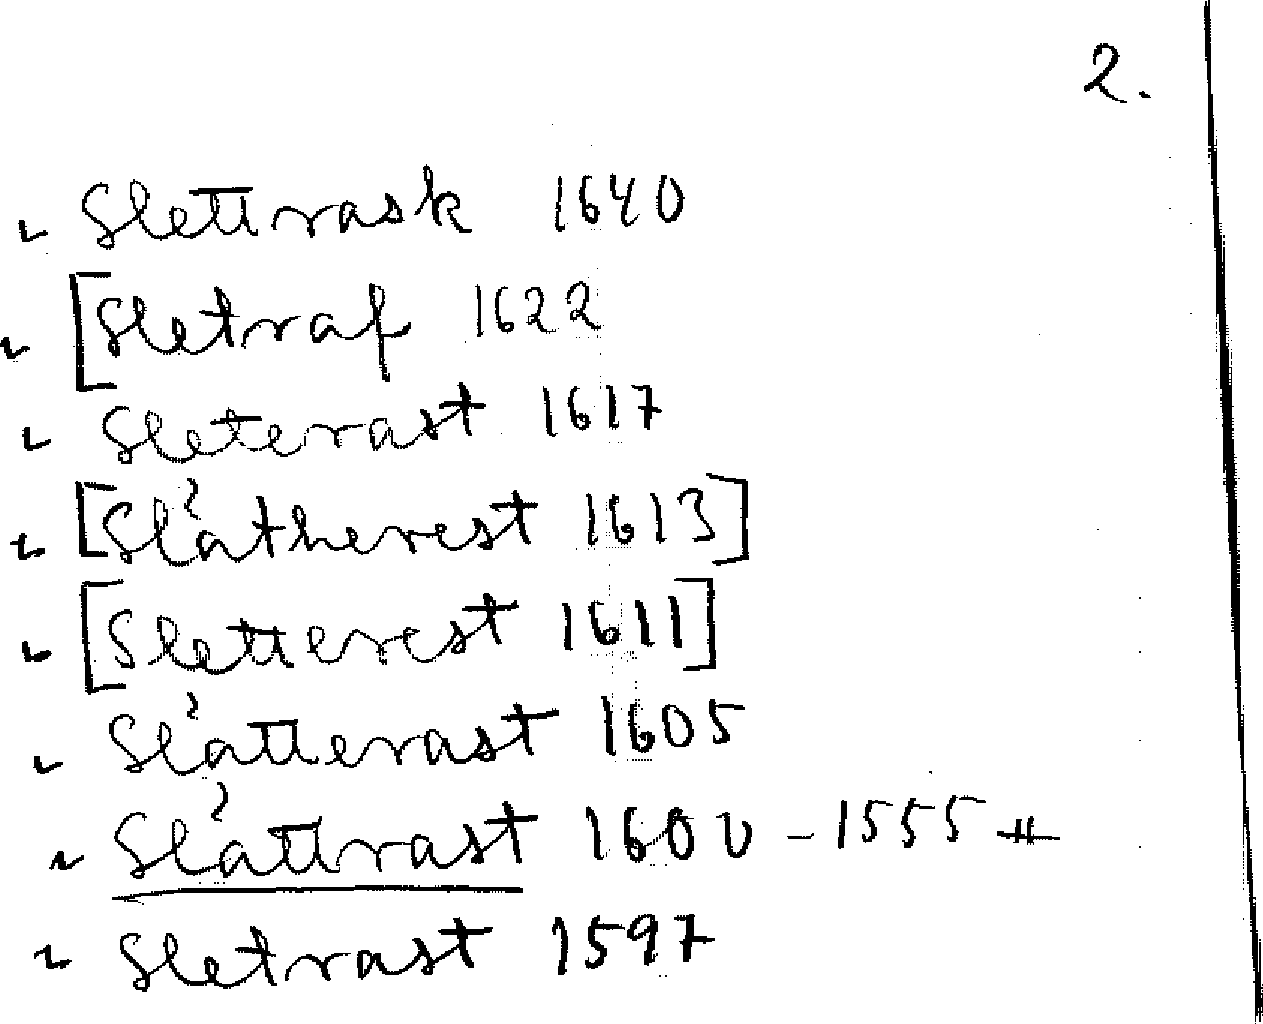 2.
" Slettrask 1640
" [Sletraf 1622
" Sleterast 1617
" [Slätherest 1613]
" [Sletterest 1611]
" Slätterast 1605
" Slättrast 1600 - 1555 #
" Sletrast 1597